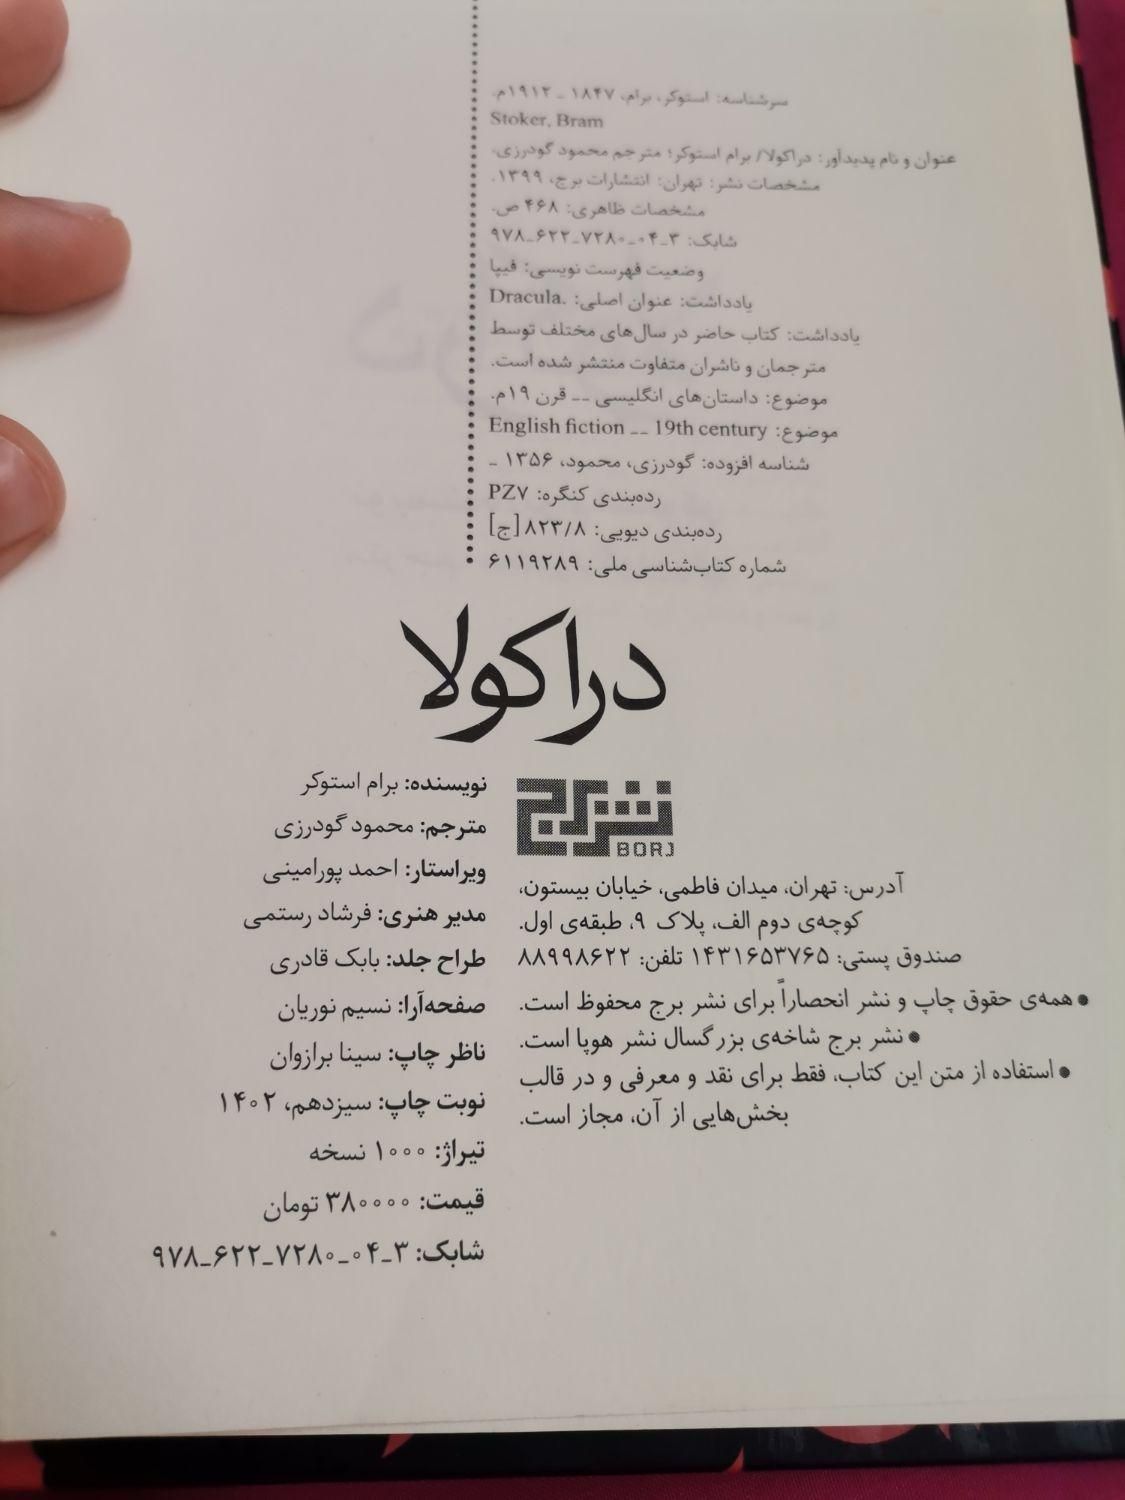 سرشناسه: استوکر، برام، ۱۸۴۷ ـ ۱۹۱۲م.
Stoker, Bram
عنوان و نام پدیدآور: دراکولا/ برام استوکر؛ مترجم محمود گودرزی.
مشخصات نشر: تهران: انتشارات برج، ۱۳۹۹.
مشخصات ظاهری: ۴۶۸ ص.
شابک: ۳_۰۴_۷۲۸۰_۶۲۲_۹۷۸
وضعیت فهرست نویسی: فیپا
یادداشت: عنوان اصلی: .Dracula
یادداشت: کتاب حاضر در سال‌های مختلف توسط
مترجمان و ناشران متفاوت منتشر شده است.
موضوع: داستان‌های انگلیسی -- قرن ۱۹م.
موضوع: English fiction -- 19th century
شناسه افزوده: گودرزی، محمود، ۱۳۵۶ ـ
رده‌بندی کنگره: PZ۷
رده‌بندی دیویی: ۸۲۳/۸[ج]
شماره کتاب‌شناسی ملی: ۶۱۱۹۲۸۹
دراکولا
نشر برج
BORJ
آدرس: تهران، میدان فاطمی، خیابان بیستون،
کوچه‌ی دوم الف، پلاک ۹، طبقه‌ی اول.
صندوق پستی: ۱۴۳۱۶۵۳۷۶۵ تلفن: ۸۸۹۹۸۶۲۲
● همه‌ی حقوق چاپ و نشر انحصاراً برای نشر برج محفوظ است.
● نشر برج شاخه‌ی بزرگسال نشر هوپا است.
● استفاده از متن این کتاب، فقط برای نقد و معرفی و در قالب
بخش‌هایی از آن، مجاز است.
نویسنده: برام استوکر
مترجم: محمود گودرزی
ویراستار: احمد پورامینی
مدیر هنری: فرشاد رستمی
طراح جلد: بابک قادری
صفحه‌آرا: نسیم نوریان
ناظر چاپ: سینا برازوان
نوبت چاپ: سیزدهم، ۱۴۰۲
تیراژ: ۱۰۰۰ نسخه
قیمت: ۳۸۰۰۰۰ تومان
شابک: ۳_۰۴_۷۲۸۰_۶۲۲_۹۷۸